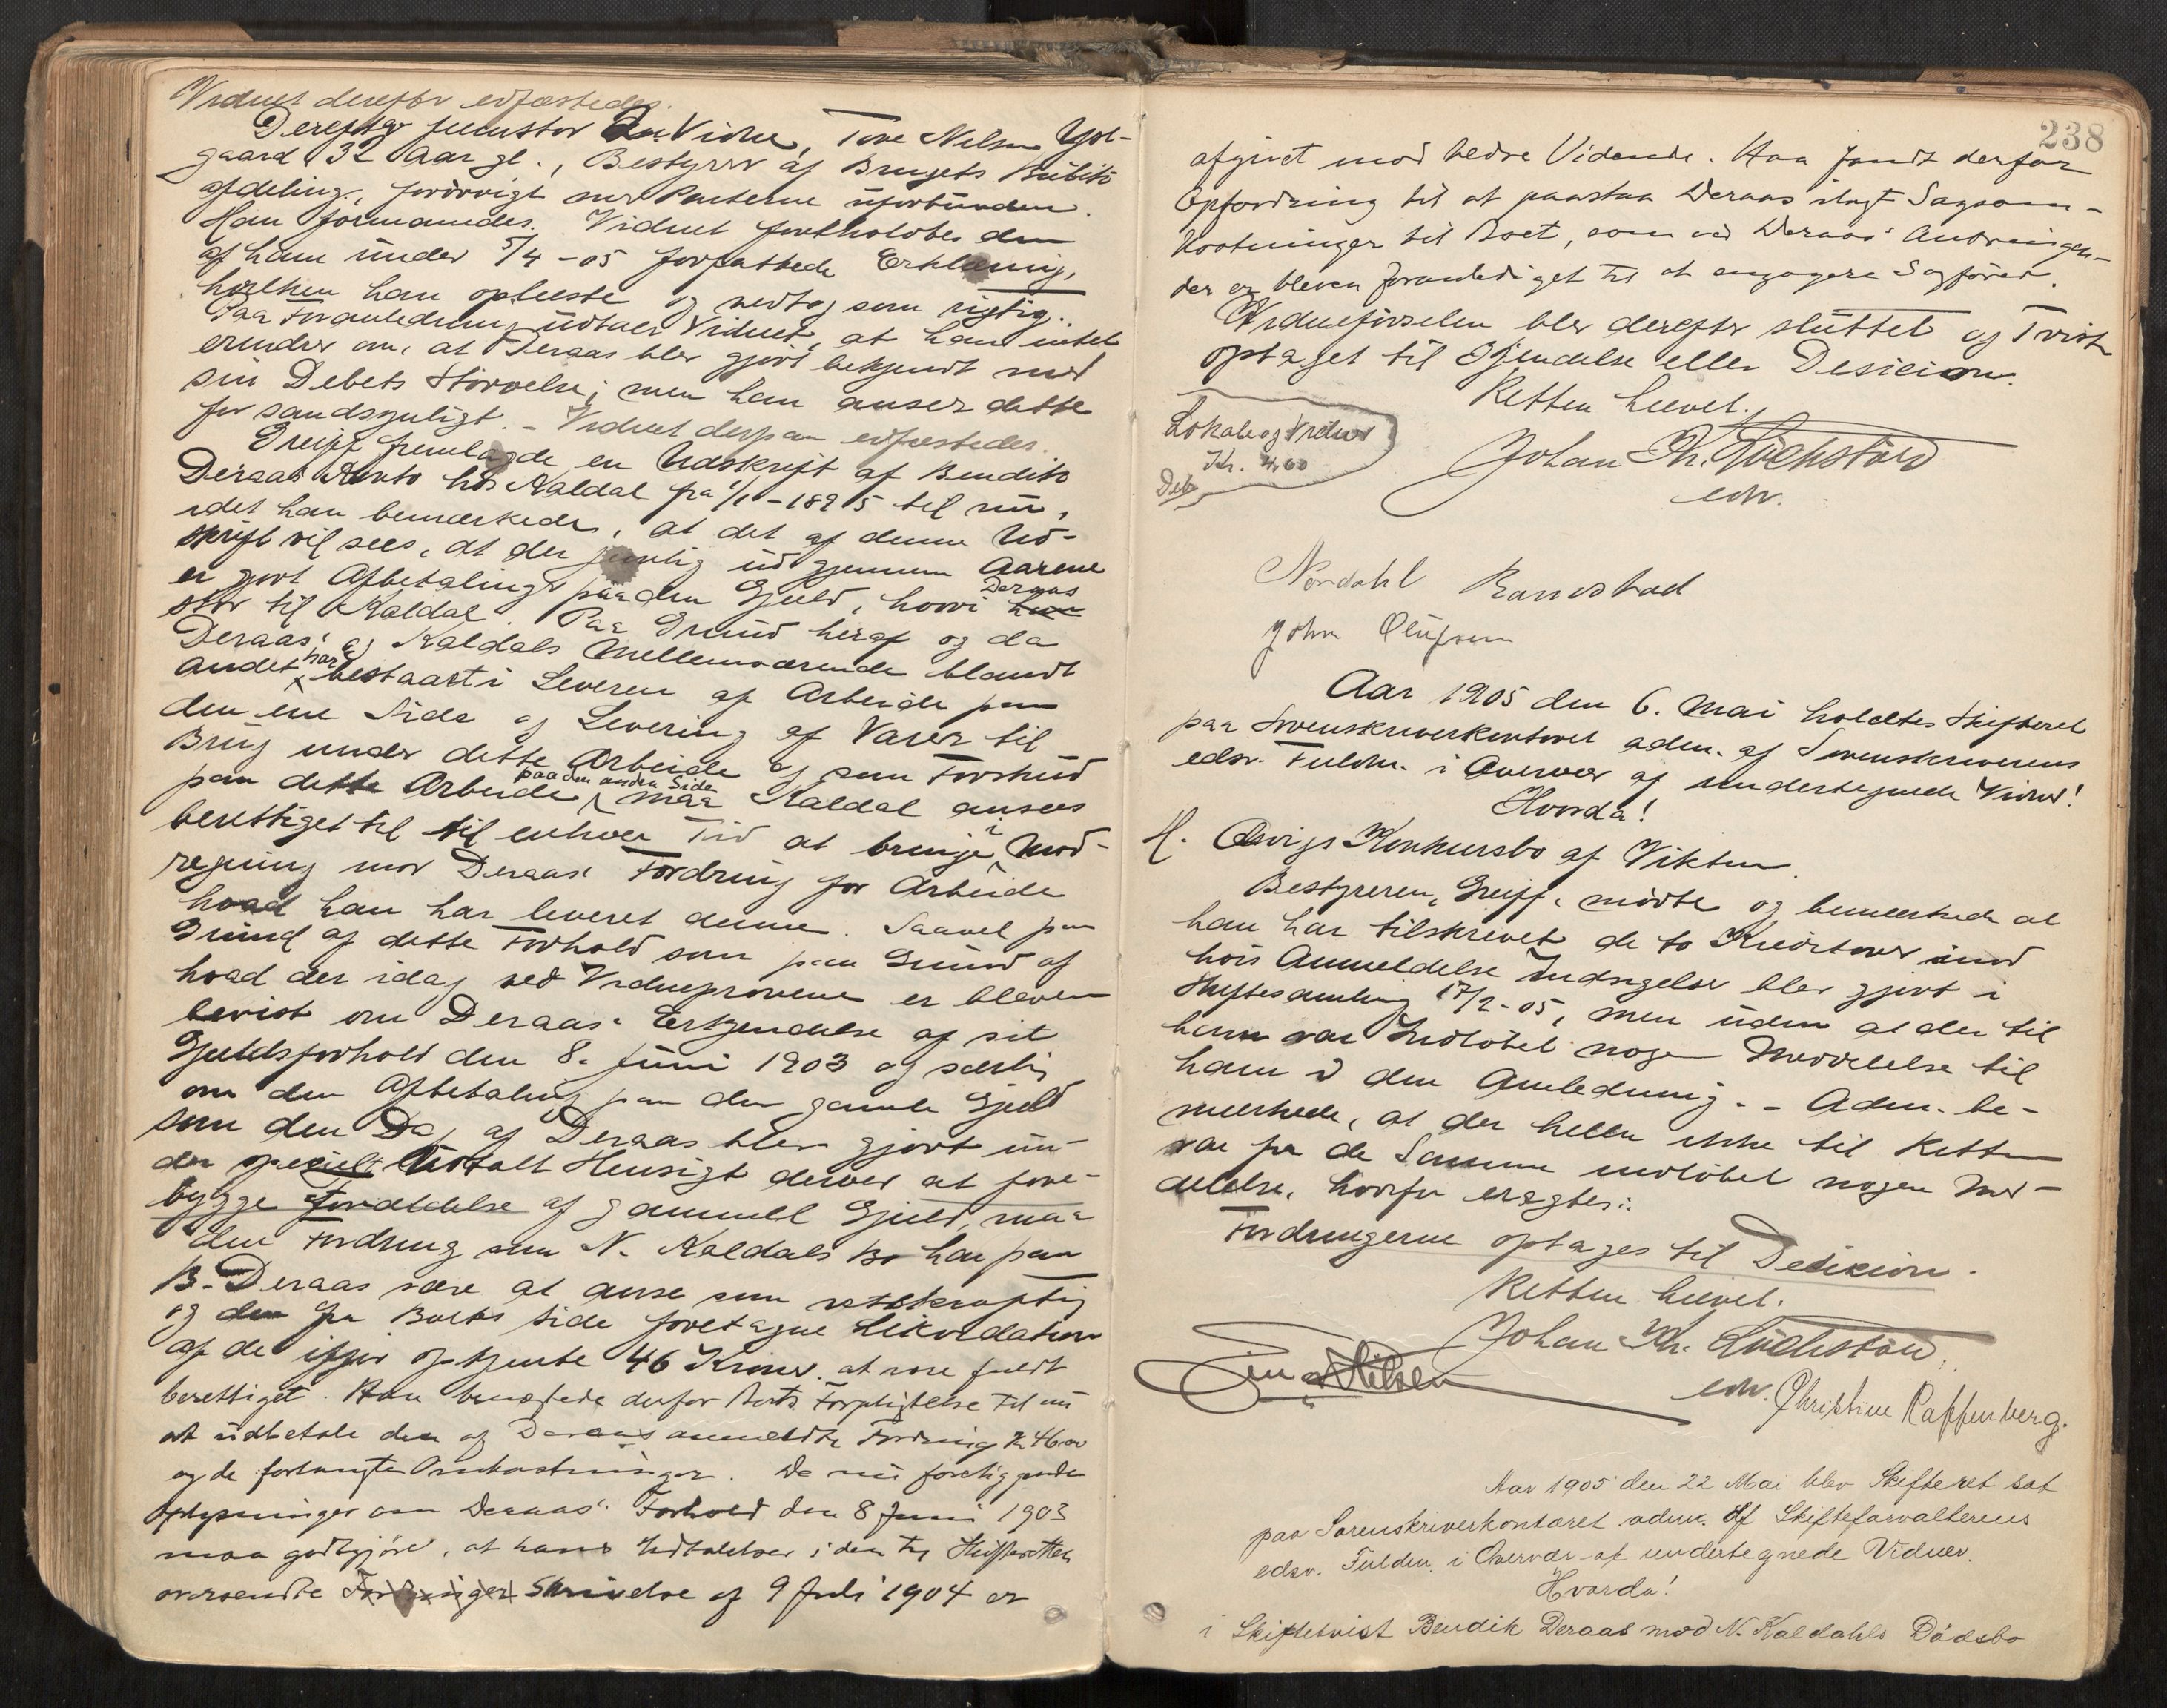 Vidnet derefter edfæstedes.
Derefter fremstod 2det Vidne, Tore Nilsen
gaard 32 Aar gl., Bestyrer af Brugets Butik
afdeling, forøvrigt med Parterne uforbunden.
Han formanedes. Vidnet foreholdtes den
af ham under 5/4-05 forfattede Erklæring,
hvilken han oplæste og vedtog som rigtig.
Paa Foranledning udtaler Vidnet, at han intet
erindrer om, at Deraas blev gjort bekjendt med
sin Debets Størrelse; men han anser dette
for sandsynligt. – Vidnet derpaa edfæstedes.
Greipp fremlagde en Udskrift af Bendik
Deraas Konto hos Kaldal fra 1/1-1895 til nu,
idet han bemærkede, at det af denne Ud-
skrift vil sees, at der jevnlig ud gjennem Aarene
er gjort Afbetalinger paa den Gjeld, hvori Deraas
stod til Kaldal. Paa Grund heraf og da
Deraas' og Kaldals Mellemværende blandt
andet har bestaaet i Leveren af Arbeide paa
den ene Side og Levering af Varer til
Brug under dette Arbeide og som Forskud
paa dette Arbeide paa den anden Side maa Kaldal ansees
berettiget til til enhver Tid at bringe i Mod-
regning mod Deraas' Fordring for Arbeide
hvad han har leveret denne. Saavel paa
Grund af dette Forhold som paa Grund af
hvad der idag ved Vidneprovene er bleven
bevist om Deraas' Erkjendelse af sit
Gjeldsforhold den 8. Juni 1903 og særlig
om den Afbetaling paa den gamle Gjeld
som den Dag af Deraas blev gjort un-
der specielt Udtalt Hensigt derved at fore-
bygge Forældelse af gammel Gjeld, maa
den Fordring som N. Kaldals Bo har paa
B. Deraas være at anse som retskraftig
og den fra Boets Side foretagne Likvidation
af de ifjor optjente 46 Kroner at være fuldt
berettiget. Han benegtede derfor Boets Forpligtelse til nu
at udbetale den af Deraas anmeldte Fordring Kr 46.00
og de forlangte Omkostninger. De nu foreliggende
Oplysninger om Deraas' Forhold den 8 Juni 1903
maa godtgjøre, at hans Udtalelser i den til Skifteretten
oversendte Skrivelse af 9 Juli 1904 er
238
afgivet mod bedre Vidende. Han fandt derfor
Opfordring til at paastaa Deraas ilagt Sagsom-
kostninger til Boet, som ved Deraas' Anbringen-
der er bleven foranlediget til at engagere Sagfører.
Vidneførselen blev derefter sluttet og Tvisten
optaget til Kjendelse eller Desicion.
Retten hævet.
Lokale og Vidner
Kr. 4,60
Deb
Johan Kr.
edv.
Nordahl Ramstad
John Olufsen
Aar 1905 den 6. Mai holdtes Skifteret
paa Sorenskriverkontoret adm. af Sorenskriverens
edsv. Fuldm. i Overvær af undertegnede Vidner!
Hvorda!
H. Konkursbo af Vikten.
Bestyreren, Greipp, mødte og bemærkede at
han har tilskrevet de to Kreditorer imod
hvis Anmeldelse Indsigelse blev gjort i
Skiftesamling 17/2-05, men uden at der til
ham var Indløbet nogen Meddelelse til
ham i den Anledning. – Adm. be-
mærkede, at der heller ikke til Retten
var fra de Samme indløbet nogen Med-
delelse, hvorfor eragtes:
Fordringerne optages til Decision.
Retten hævet.
Johan Kr.
edv.
Christine Kappenberg.
Aar 1905 den 22 Mai blev Skifteret sat
paa Sorenskriverkontoret adm. af Skifteforvalterens
edsv. Fuldm. i Overvær af undertegnede Vidner.
Hvorda!
i Skiftetvist Bendik Deraas mod N. Kaldahls Dødsbo